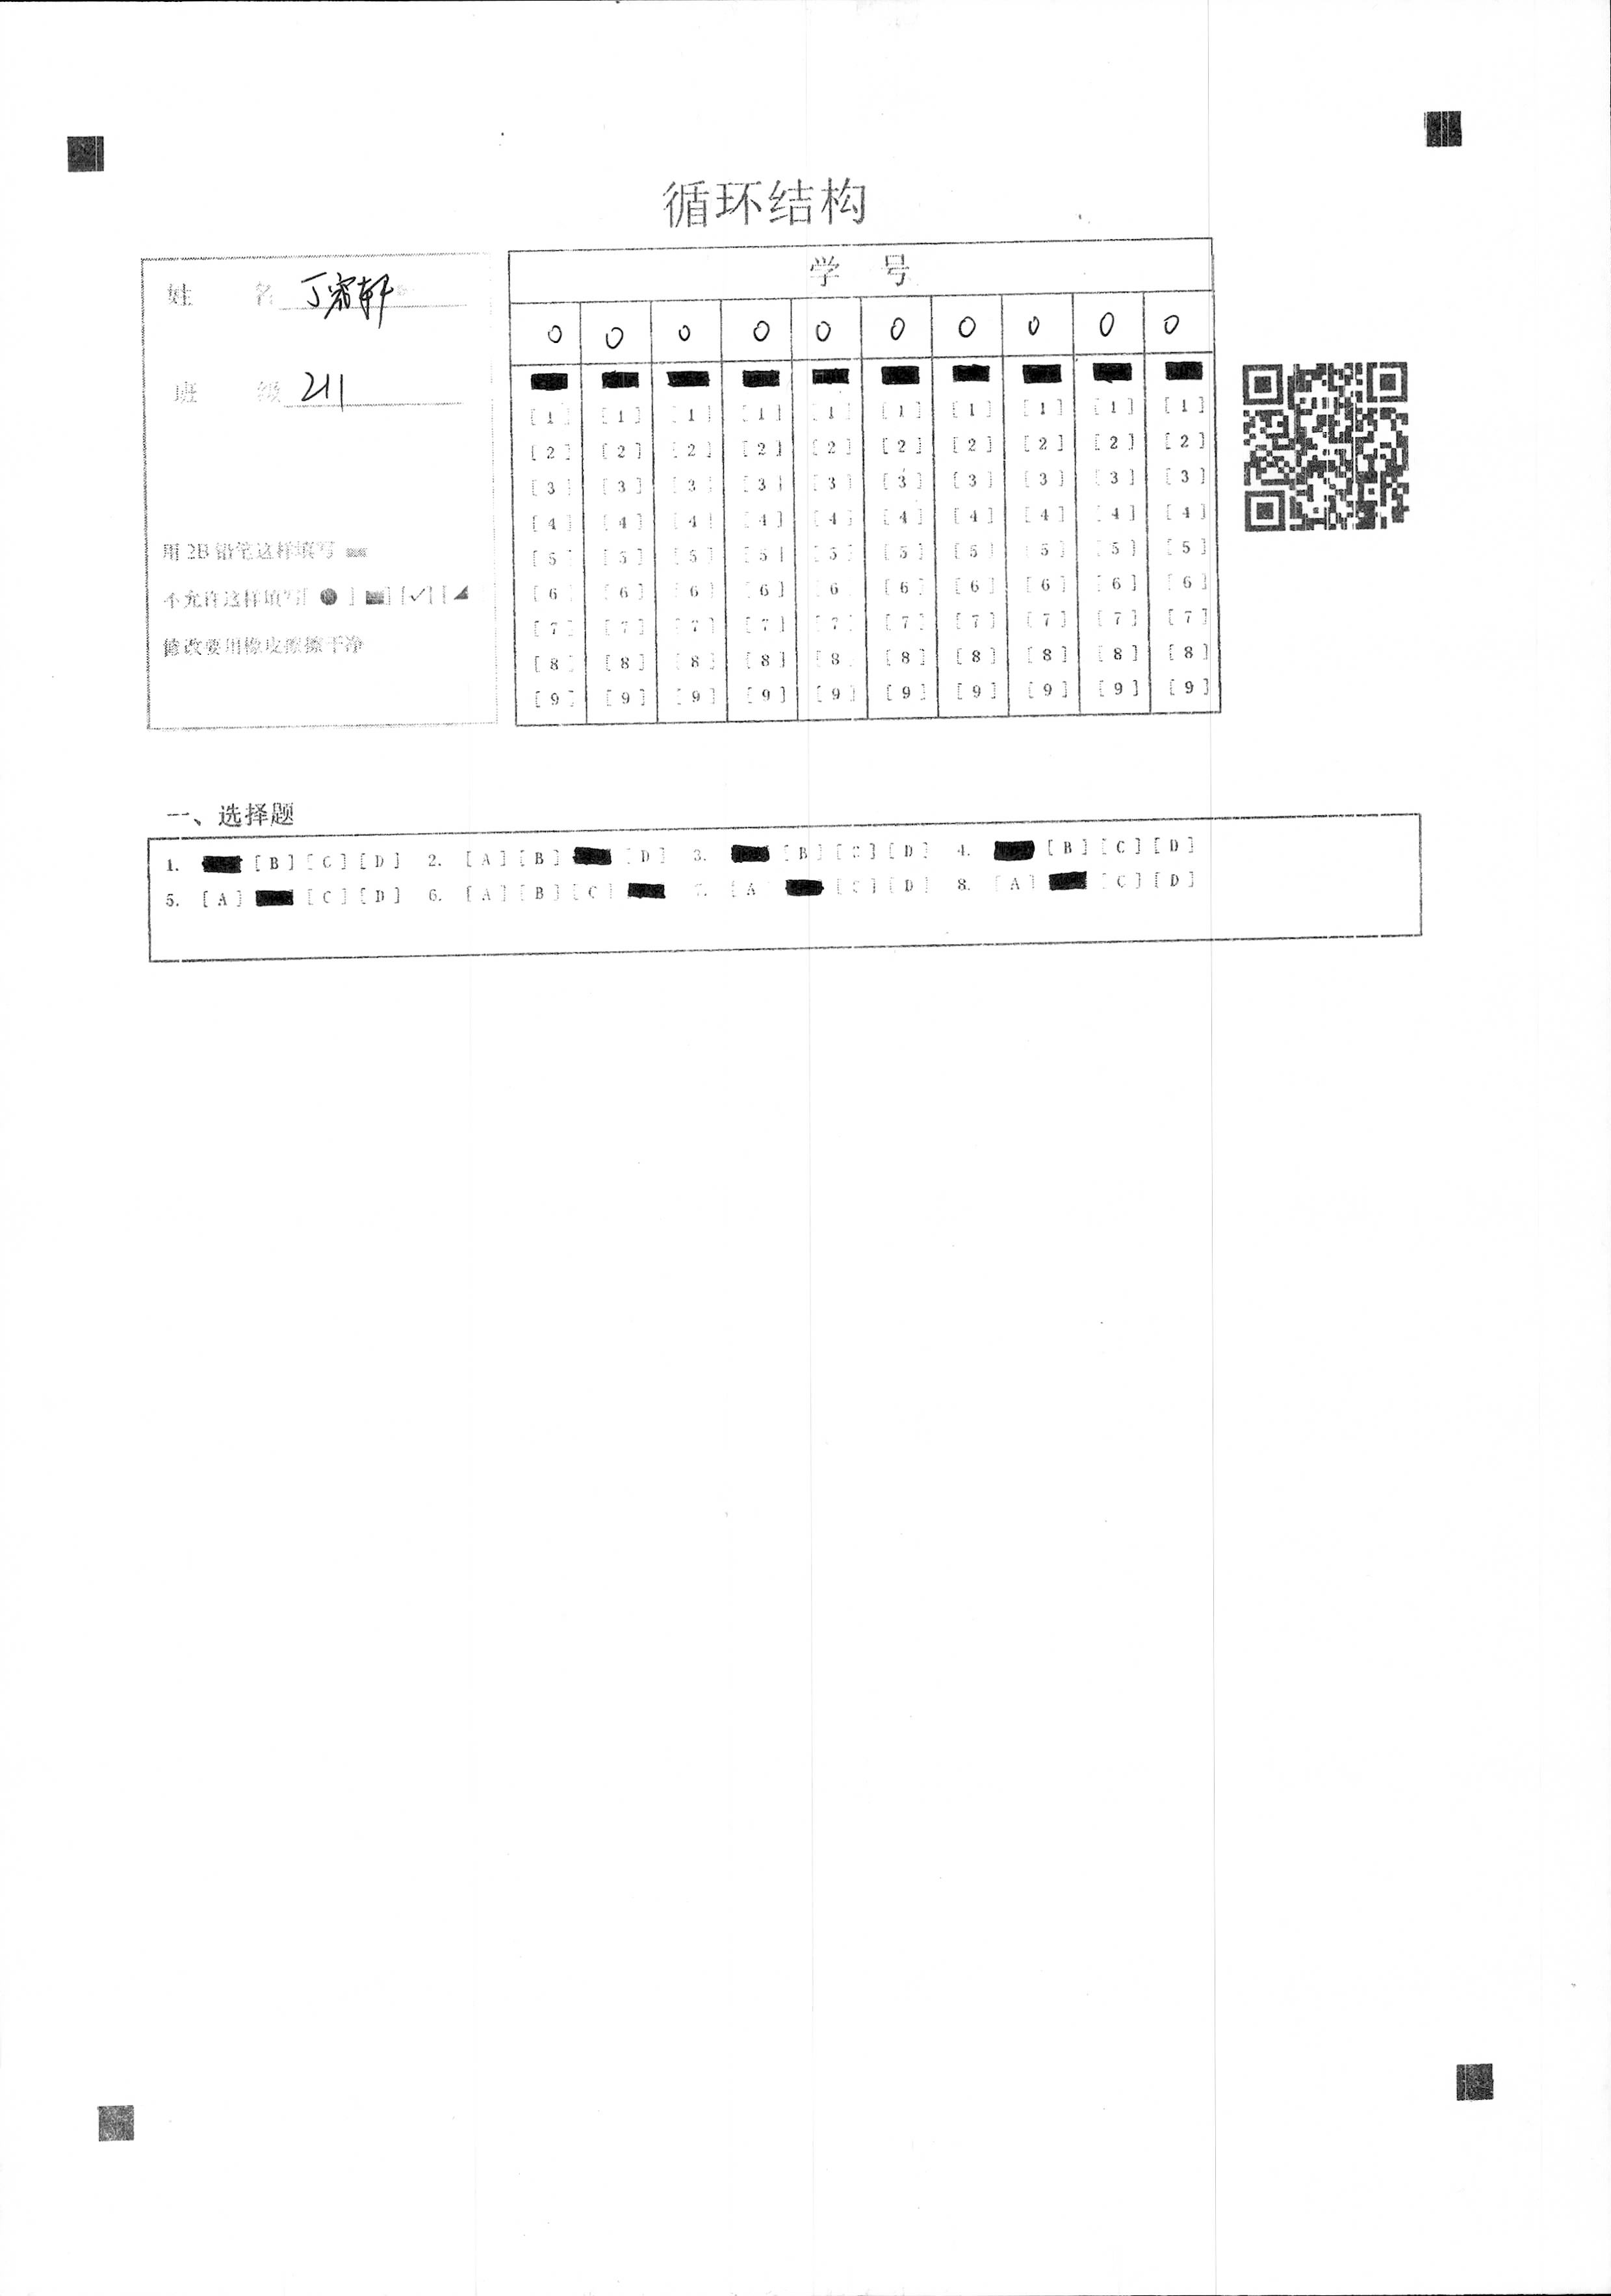 循环结构
姓 名 丁睿轩
班 级 211
用 2B 铅笔这样填写
不允许这样填写[●] [■] [✓] [◢]
修改要用橡皮擦擦干净
学 号
0 0 0 0 0 0 0 0 0 0
[1] [1] [1] [1] [1] [1] [1] [1] [1] [1]
[2] [2] [2] [2] [2] [2] [2] [2] [2] [2]
[3] [3] [3] [3] [3] [3] [3] [3] [3] [3]
[4] [4] [4] [4] [4] [4] [4] [4] [4] [4]
[5] [5] [5] [5] [5] [5] [5] [5] [5] [5]
[6] [6] [6] [6] [6] [6] [6] [6] [6] [6]
[7] [7] [7] [7] [7] [7] [7] [7] [7] [7]
[8] [8] [8] [8] [8] [8] [8] [8] [8] [8]
[9] [9] [9] [9] [9] [9] [9] [9] [9] [9]
一、选择题
1. [B] [C] [D] 2. [A] [B] [D] 3. [B] [C] [D] 4. [B] [C] [D]
5. [A] [C] [D] 6. [A] [B] [C] 7. [A] [C] [D] 8. [A] [C] [D]